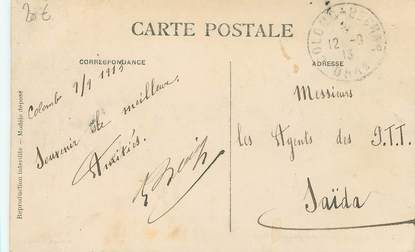 20 €
CARTE POSTALE
CORRESPONDANCE
ADRESSE
9/9 1913
Souvenir de meilleur
Amitiés.
Messieurs
les Agents des P.T.T.
Saïda
Reproduction interdite — Modèle déposé
12 - 9
13